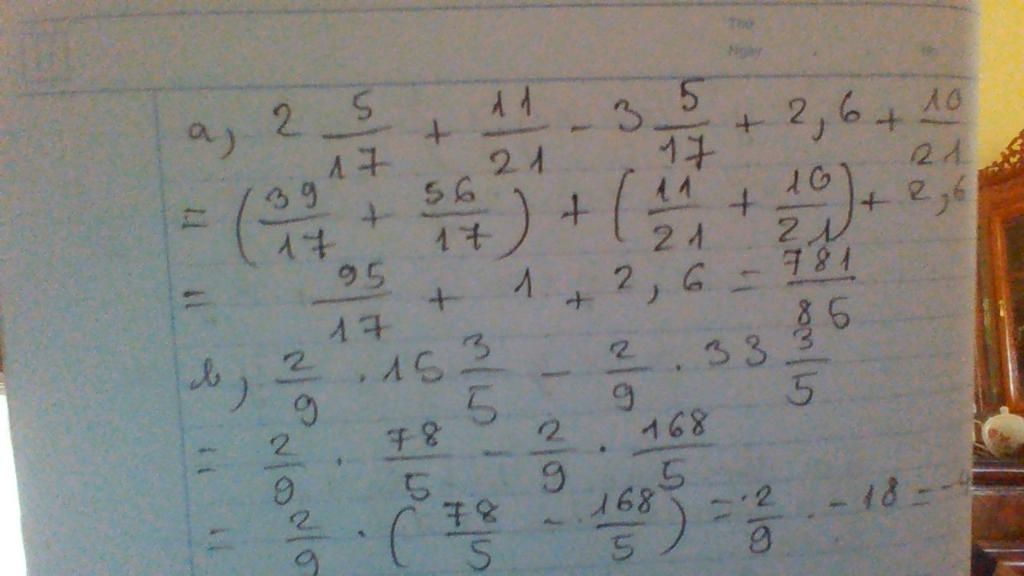 Thứ
Ngày
a, 2 5/17 + 11/21 - 3 5/17 + 2,6 + 10/21
= (39/17 + 56/17) + (11/21 + 10/21) + 2,6
= 95/17 + 1 + 2,6 = 781/85
b, 2/9 . 15 3/5 - 2/9 . 33 3/5
= 2/9 . 78/5 - 2/9 . 168/5
= 2/9 . (78/5 - 168/5) = 2/9 . -18 = -4